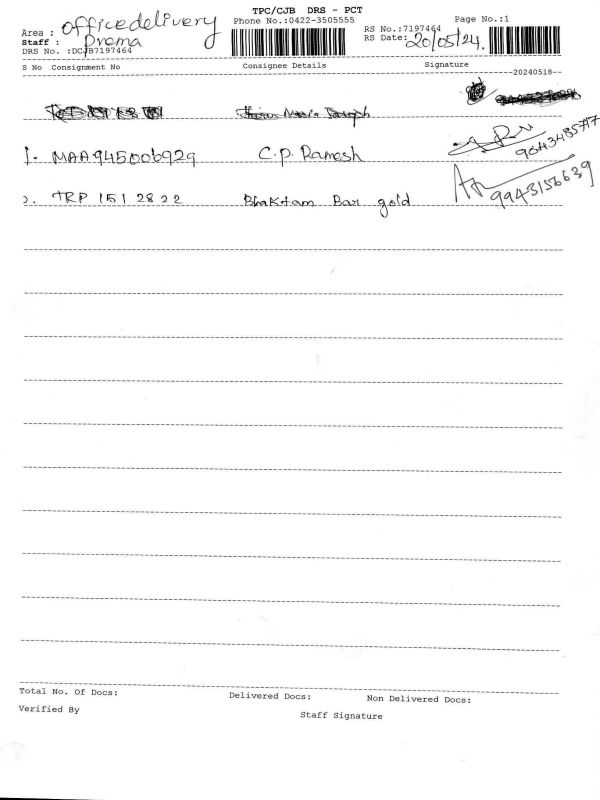 TPC/CJB DRS - PCT
Area : officedelivery Phone No.:0422-3505555 Page No.:1
Staff : Prema RS No.:7197464
DRS No. :DCJB7197464 RS Date: 20/05/24.
S No Consignment No Consignee Details Signature
20240518
1. MAA945006929 C.P. Ramesh 9043485717
2. TRP 1512822 Bhaktam Bar gold 9943156639
Total No. Of Docs: Delivered Docs: Non Delivered Docs:
Verified By Staff Signature